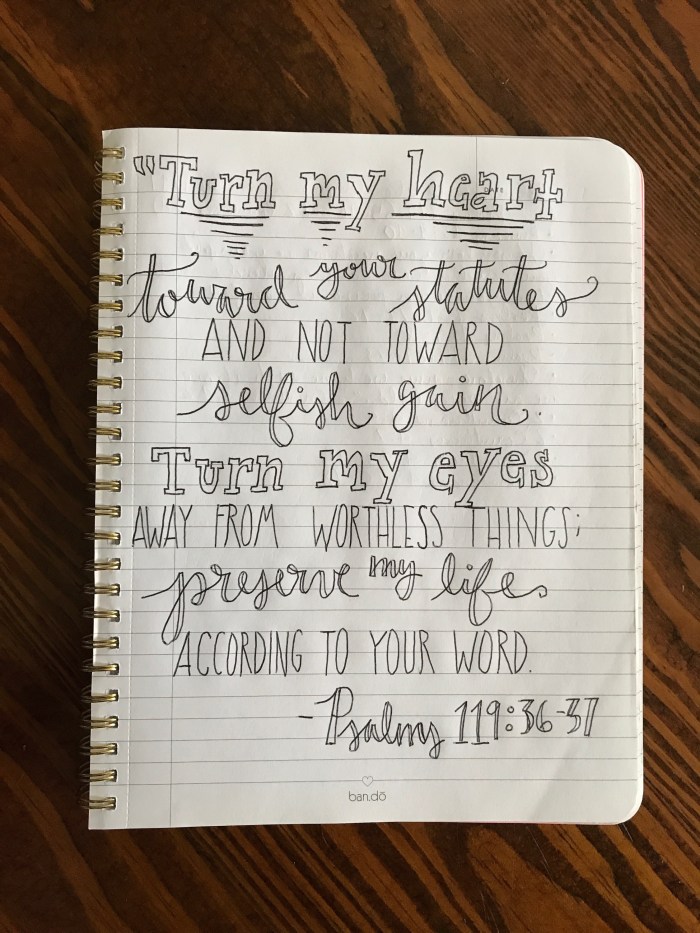 "Turn my heart
toward your statutes
AND NOT TOWARD
selfish gain.
Turn my eyes
AWAY FROM WORTHLESS THINGS;
preserve my life
ACCORDING TO YOUR WORD.
-Psalms 119:36-37
ban.dō